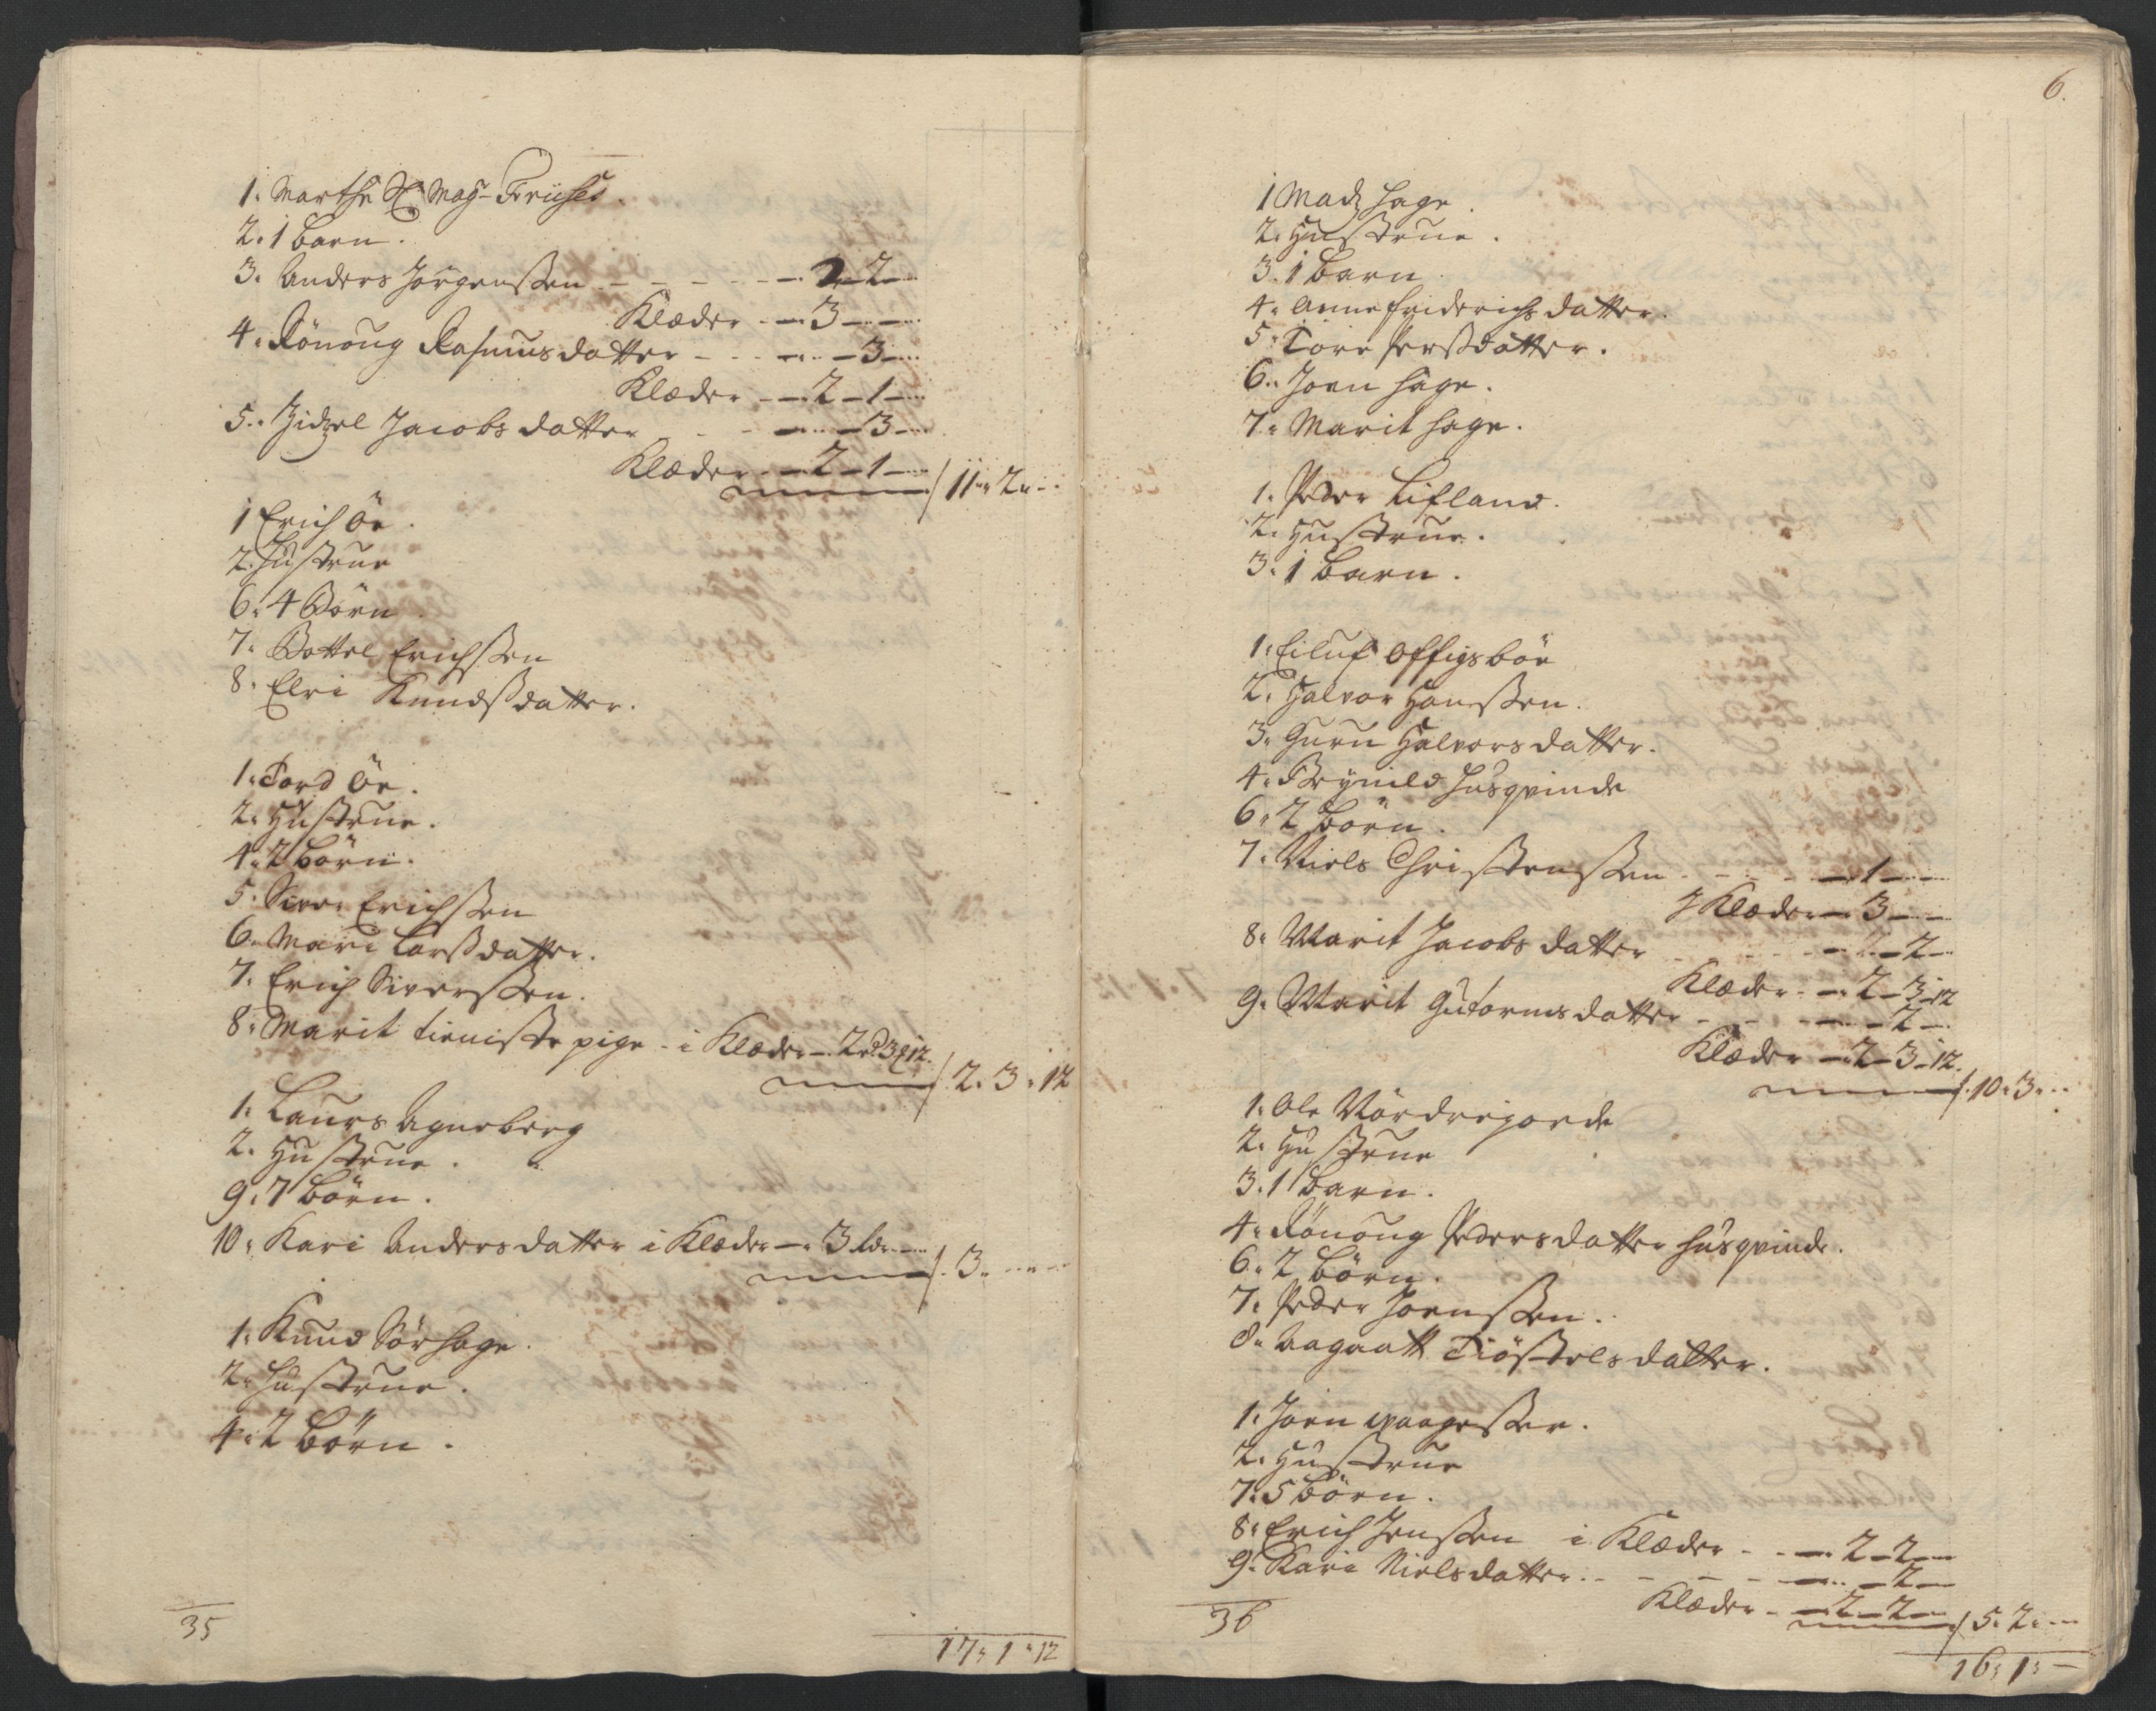 1. Marthe Sl: Mag: Friises.
2. 1 barn.
3. Anders Jörgensen - - - - - 2 - 2 -
Klæder - - 3 - -
4. Rönoug Rasmusdatter - - - - 3 -
Klæder - - 2 - 1 -
5. Zidzel Jacobsdatter - - - 3 -
Klæder - - 2 - 1 -
/ 11 " 2 "
1 Erich Öe.
2. Hustrue
6. 4 Börn
7. Bottel Erichsen
8. Elri Knudsdatter.
1. Tord Öe.
2. Hustrue.
4. 2 börn.
5. Siver Erichsen
6. Mari Larsdatter.
7. Erich Siversen.
8. Marit tieniste pige - i Klæder - 2 rd 3 12.
/ 2. 3. 12
1. Laurs Agneberg
2. Hustrue.
9. 7 börn.
10. Kari Andersdatter i Klæder - 3 -
/ 3 " " "
1. Knud Sörhage.
2. Hustrue.
4. 2 börn.
35
17 " 1 " 12
6.
1 Madz Hage.
2. Hustrue.
3. 1 barn
4. Anne Friderichsdatter.
5. Tore Persdatter.
6. Joen Hage.
7. Marit Hage.
1. Peder Lifland.
2. Hustrue.
3. 1 barn.
1. Eiluf Offigsböe
2. Halvor Hansen.
3. Guru Halvorsdatter.
4. Brynild Husqvinde
6. 2 börn.
7. Niels Christensen - - - - 1 - -
Klæder - 3 - -
8. Marit Jacobsdatter - - - - 2 -
Klæder - - 2 - 3 - 12
9. Marit Gutormsdatter - - - - 2 -
Klæder - 2 - 3 - 12.
/ 10 " 3 "
1. Ole Nördregarde
2. Hustrue
3. 1 barn.
4. Rönoug Pedersdatter husqvinde.
6. 2 börn.
7. Peder Joensen.
8. Aagaatt Tiöstelsdatter.
1. Joen
2. Hustrue
7. 5 börn.
8. Erich Jensen i Klæder - - 2 - 2 -
9. Kari Nielsdatter - - - - - 2 -
Klæder - - 2 - 2 -
/ 5. 2. -
36
16 " 1 " -